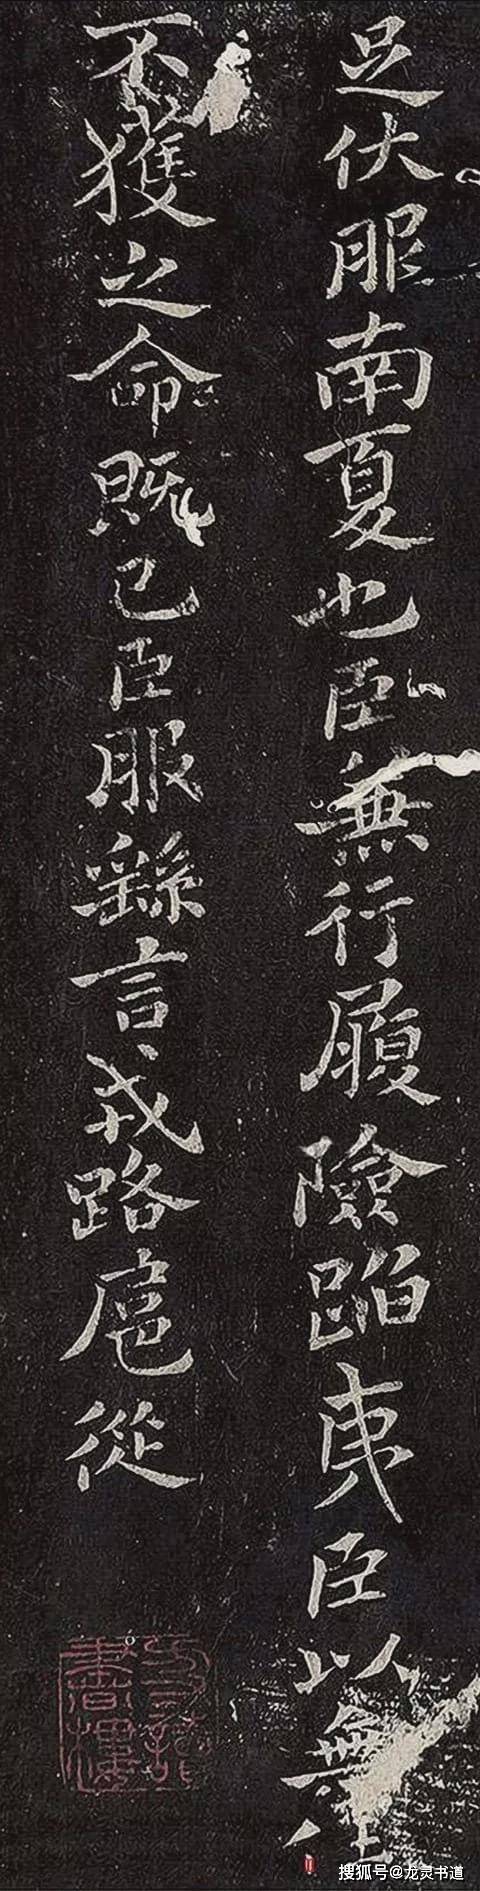 足伏服南夏也臣無行履險蹈夷臣以無任
不獲之命既已臣服繇言戎路扈從
搜狐号@龙灵书道